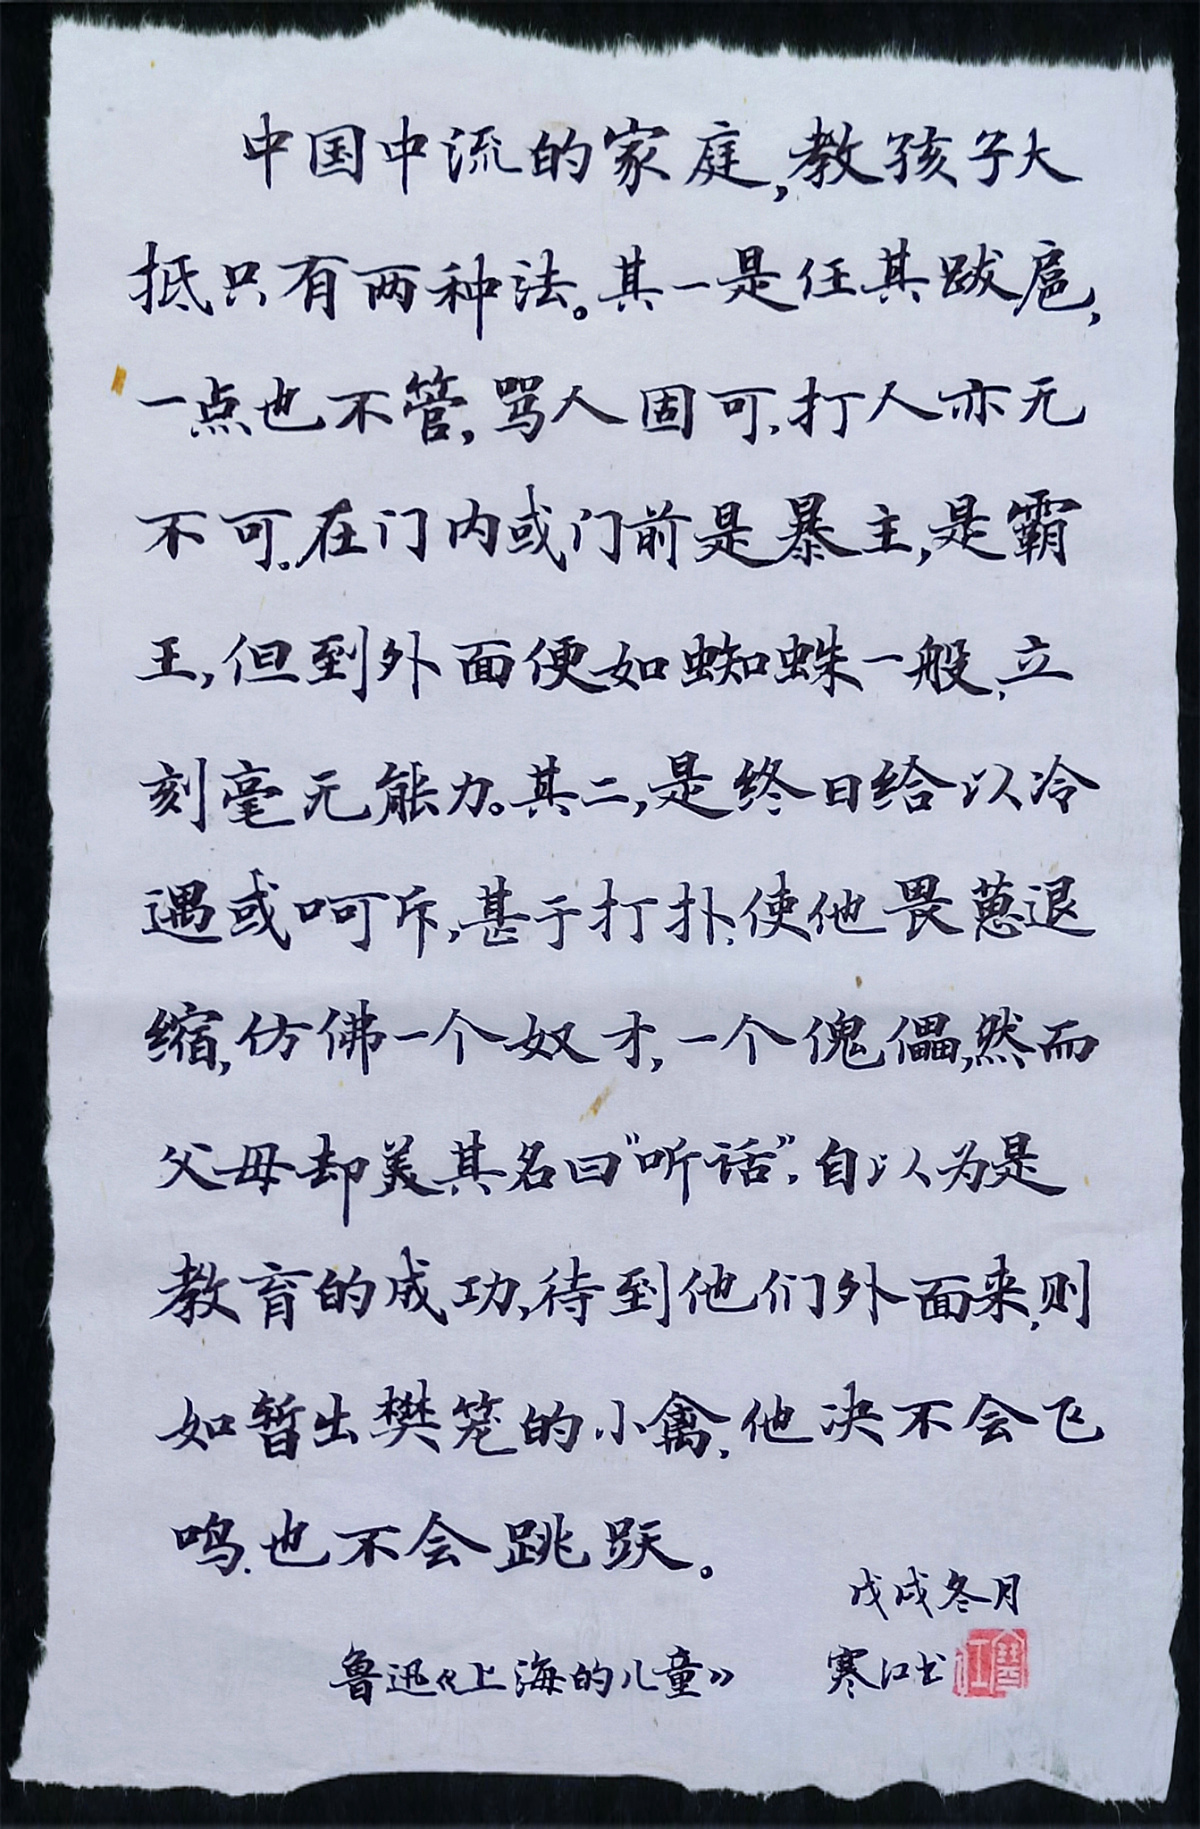 中国中流的家庭,教孩子大
抵只有两种法。其一是任其跋扈,
一点也不管,骂人固可,打人亦无
不可。在门内或门前是暴主,是霸
王,但到外面便如蜘蛛一般,立
刻毫无能力。其二,是终日给以冷
遇或呵斥,甚于打扑,使他畏葸退
缩,仿佛一个奴才,一个傀儡,然而
父母却美其名曰“听话”,自以为是
教育的成功,待到他们外面来,则
如暂出樊笼的小禽,他决不会飞
鸣,也不会跳跃。
戊戌冬月
鲁迅《上海的儿童》
寒江书